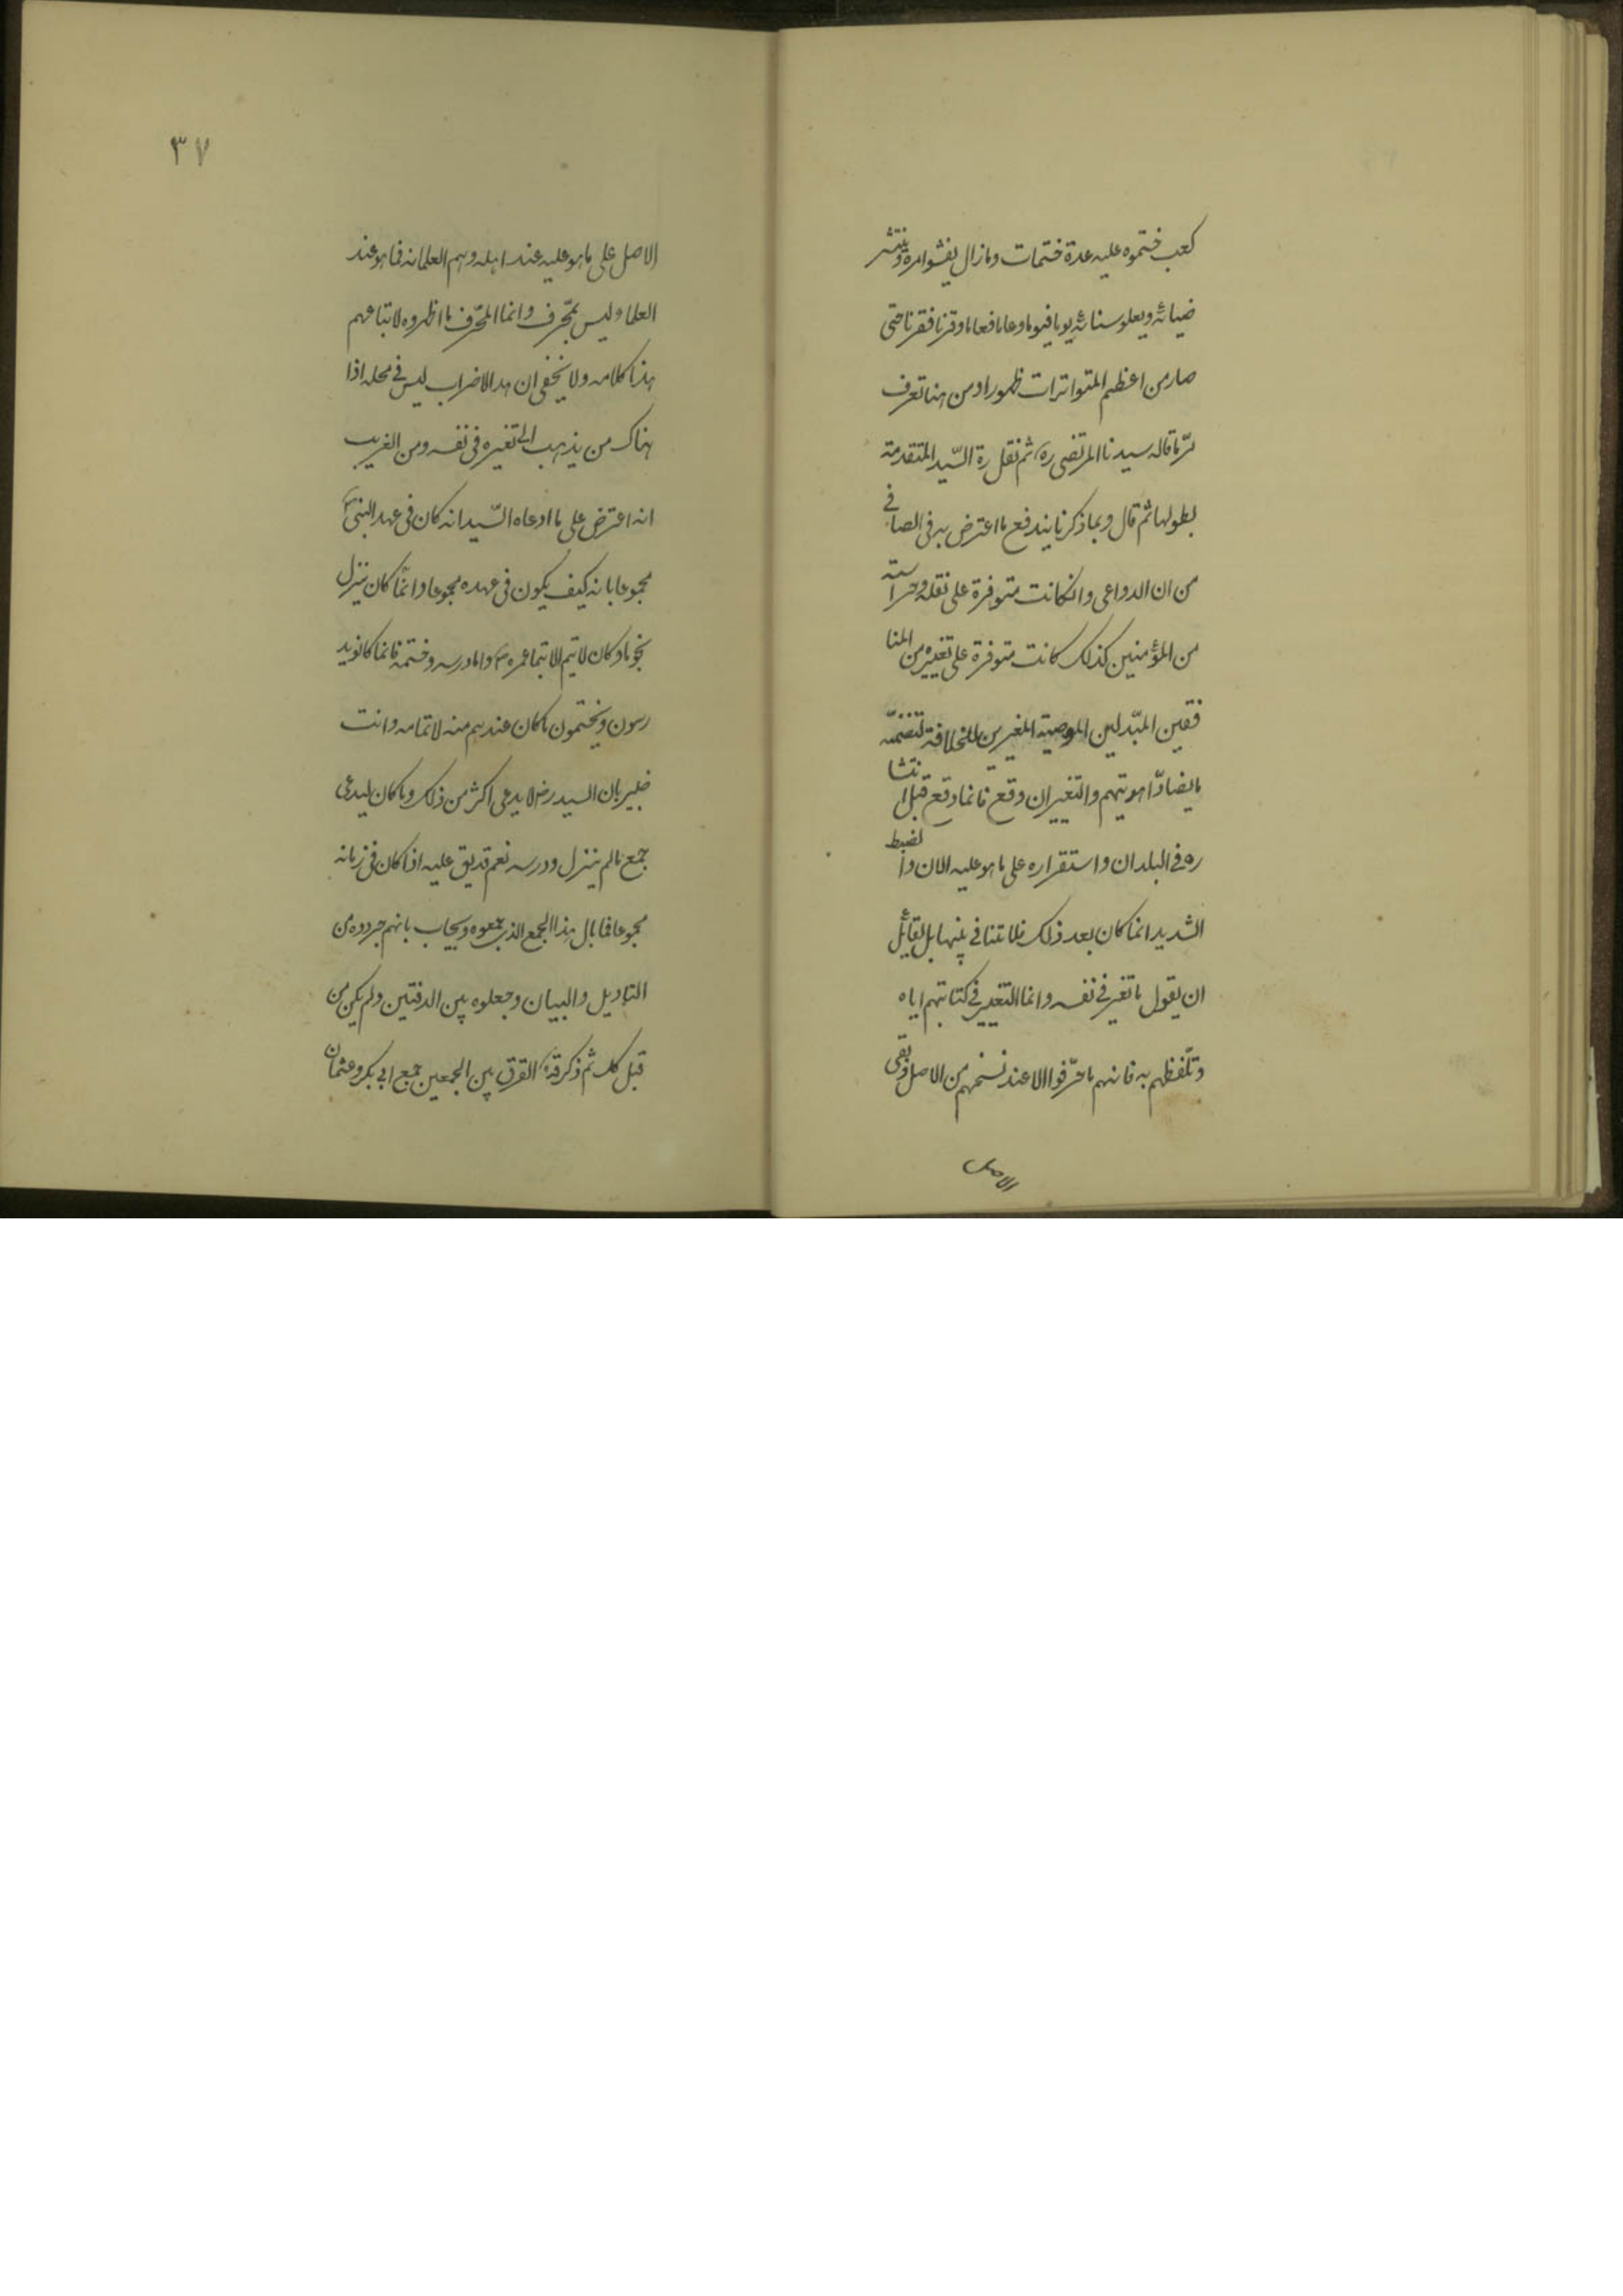 كعب ختموه عليه عدة ختمات ومازال يفشوا امره وينتشر
ضيائه ويعلو سنائه يوما فيوما وعاما فعاما وقرنا فقرنا حتى
صار من اعظم المتواترات ظهورا ومن هنا تعرف
سرّ ما قاله سيدنا المرتضى ره ثم نقل السّيد المتقدمة
بطولها ثم قال وبما ذكرنا يندفع ما اعترض به فى الصافي
من ان الدواعى وان كانت متوفرة على نقله وحراسته
من المؤمنين كذلك كانت متوفرة على تغييره من المنا
فقين المبّدلين الموصية المغيرين للخلافة لتضمنّه
ما يضادّ اهويتهم والتغيير ان وقع فانما وقع قبل انتشا
ره فى البلدان واستقراره على ما هو عليه الان والضبط
الشديد انما كان بعد ذلك فلا تنافى بينهما بل لقائل
ان يقول ما تغير فى نفسه وانما التغيير فى كتابتهم اياه
وتلّفظهم به فانهم ما حرّفوا الا عند نسخهم من الاصل وبقى
الاصل
٣٧
الاصل على ما هو عليه عند اهله وهم العلماء به فما هو عند
العلماء ليس بمحّرف وانما المحّرف ما اظهروه لاتباعهم
هذا كلامه ولا يخفى ان هذا الاضراب ليس فى محله اذا
هناك من يذهب الى تغيره فى نفسه ومن الغريب
انه اعترض على ما ادعاه السّيد انه كان فى عهد النبى ص
مجموعا بانه كيف يكون فى عهده مجموعا وانّما كان ينزل
نجوما وكان لا يتم الا بتمام عمره ص واما درسه وختمه فانما كانوا يد
رسون ويختمون ما كان عندهم منه لا تمامه وانت
خبير بان السيد رض لا يدعى اكثر من ذلك وما كان ليدعى
جمع ما لم ينزل ودرسه نعم قد يق عليه اذا كان فى زمانه
مجموعا فما بال هذا الجمع الذى جمعوه ويجاب بانهم جردوه من
التاويل والبيان وجعلوه بين الدفتين ولم يكن من
قبل كك ثم ذكر الفرق بين الجمعين جمع ابى بكر وعثمان